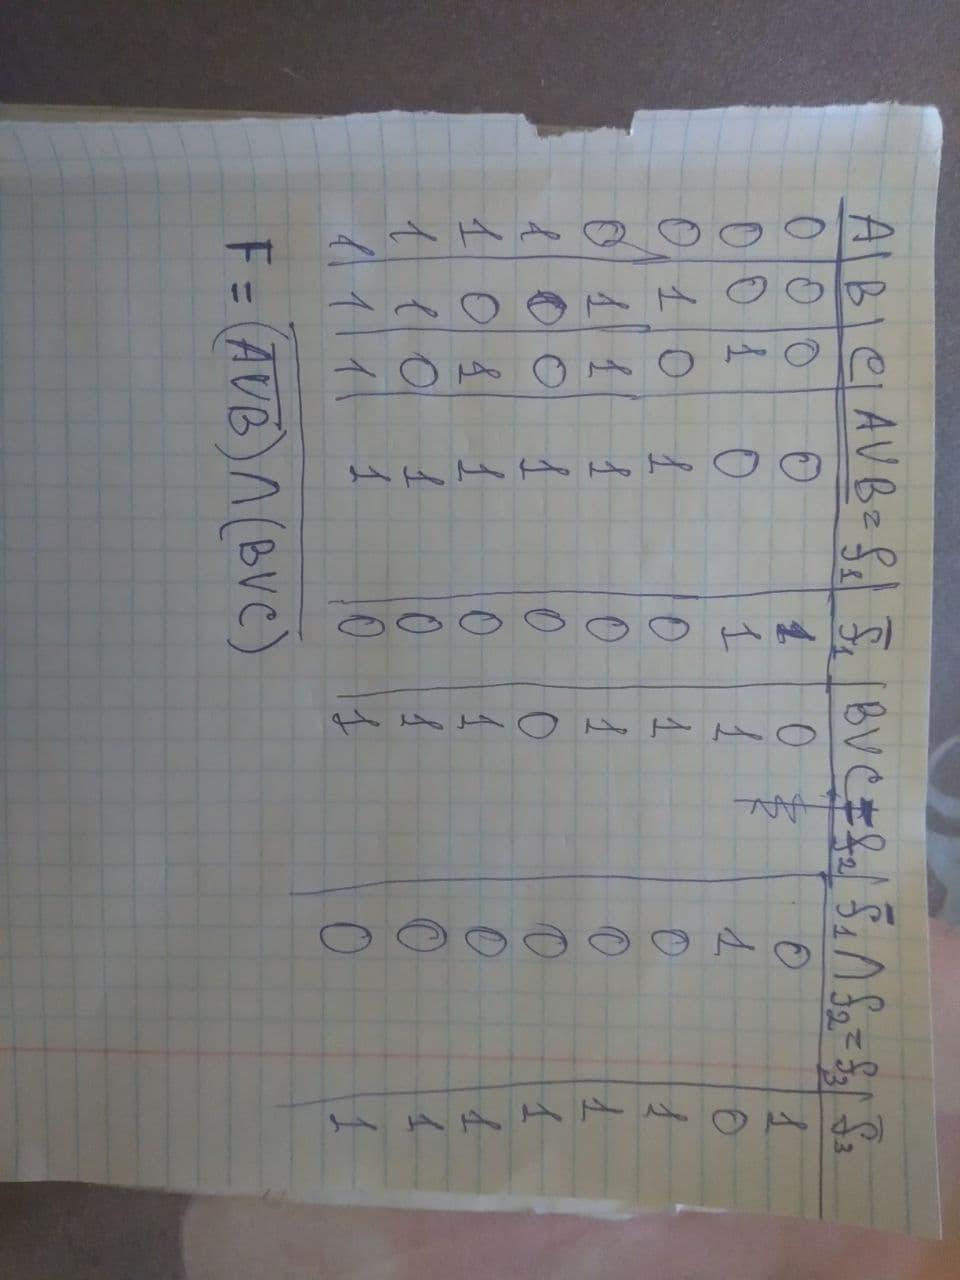 A | B | C | A∨B = f₁ | f̅₁ | B∨C = f₂ | f̅₁ ∧ f₂ = f₃ | f̅₃
0 0 0 0 1 0 0 1
0 0 1 0 1 1 1 0
0 1 0 1 0 1 0 1
0 1 1 1 0 1 0 1
1 0 0 1 0 0 0 1
1 0 1 1 0 1 0 1
1 1 0 1 0 1 0 1
1 1 1 1 0 1 0 1
F = \overline{(\overline{A∨B}) ∧ (B∨C)}